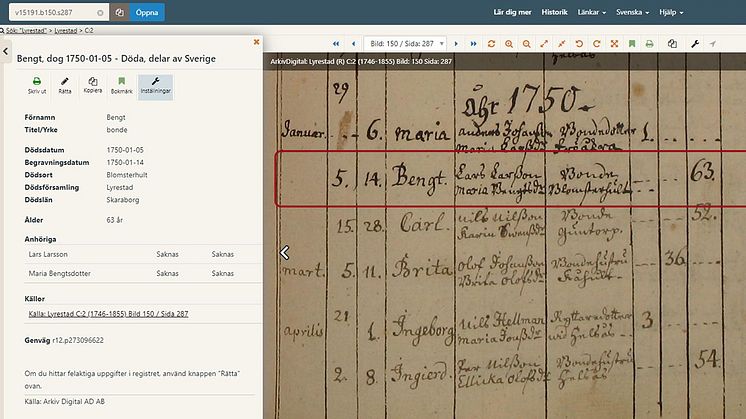 v15191.b150.s287
Öppna
Lär dig mer Historik Länkar Svenska Hjälp
Sök: "Lyrestad" > Lyrestad > C:2
Bengt, dog 1750-01-05 - Döda, delar av Sverige
Skriv ut Rätta Kopiera Bokmärk Inställningar
Förnamn Bengt
Titel/Yrke bonde
Dödsdatum 1750-01-05
Begravningsdatum 1750-01-14
Dödsort Blomsterhult
Dödsförsamling Lyrestad
Dödslän Skaraborg
Ålder 63 år
Anhöriga
Lars Larsson Saknas Saknas
Maria Bengtsdotter Saknas Saknas
Källor
Källa: Lyrestad C:2 (1746-1855) Bild 150 / Sida 287
Genväg r12.p273096622
Om du hittar felaktiga uppgifter i registret, använd knappen "Rätta"
ovan.
Källa: Arkiv Digital AD AB
Bild: 150 / Sida: 287
ArkivDigital: Lyrestad (R) C:2 (1746-1855) Bild: 150 Sida: 287
29
Åhr 1750.
Januar. 6. Maria Anders Bondedotter 1.
Maria
5. 14. Bengt. Lars Larßon Bonde 63.
Maria Bengtsdr Blomsterhult
15. 28. Carl. Nils Nilßon Bonde 52.
Karin Swensdr
mart. 5. 11. Brita Olof Bondehustru 36
Brita Olofsdr
aprilis 21 1. Ingeborg Nils Hellman Ryttaredotter 3
Maria
2. 8. Ingierd. Nilßon Bondehustru 54.
Ellicka Olofsdr